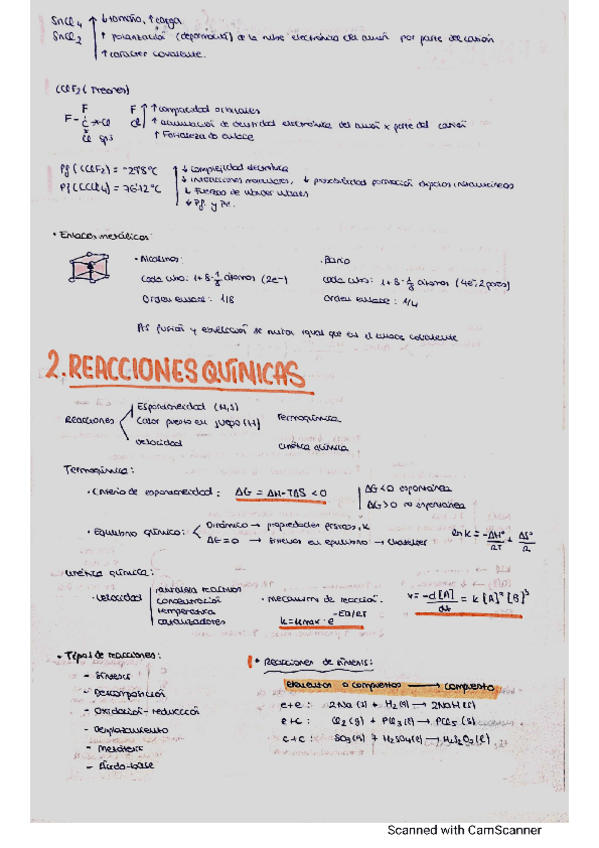 SnCl4 ↓ tamaño, ↑ carga
SnCl2 ↑ polarización (deformación) de la nube electrónica del anión por parte del catión
↑ carácter covalente.
CCl2F2 (Freones)
F
F - C → Cl
Cl gas
F
Cl
↑ compacidad orbitales
↑ acumulación de densidad electrónica del anión x parte del catión
↑ Fortaleza de enlace
↓ complejidad electrónica
↓ interacciones moleculares, ↓ probabilidad formación dipolos instantáneos
↓ Fuerzas de van der Waals
↓ Pf. y Pe.
• Enlaces metálicos:
• Alcalinos:
cada cubo: 1+8·1/8 átomos (2e-)
Orden enlace: 1/8
• Bario
cada cubo: 1+8·1/8 átomos (4e-; 2 pares)
Orden enlace: 1/4
Pts fusión y ebullición se miran igual que en el enlace covalente
2. REACCIONES QUÍNICAS
Reacciones
Espontaneidad (H,S)
Calor puesto en juego (H)
Termoquímica
Velocidad
Cinética química
Termoquímica:
• Criterio de espontaneidad: ΔG = ΔH-TΔS < 0
ΔG<0 espontánea
ΔG>0 no espontánea
• Equilibrio químico:
Dinámico → propiedades
ΔG=0 → sistema en equilibrio → Chatelier
ln K = -ΔH°/RT + ΔS°/R
Cinética química:
• Velocidad
naturaleza reactivos
concentración
temperatura
catalizadores
• Mecanismo de reacción:
k = kmax · e -EA/RT
v = -d[A]/dt = k [A] [B]
• Tipos de reacciones:
- Síntesis
- Descomposición
- Oxidación-reducción
- Desplazamiento
- Metátesis
- Ácido-base
• Reacciones de síntesis:
elementos o compuestos → compuesto
e+e: 2Na (s) + H2 (g) → 2NaH (s)
e+c: Cl2 (g) + PCl3 (l) → PCl5 (s)
c+c: SO3 (g) + H2SO4 (l) → H2S2O7 (l)
Scanned with CamScanner